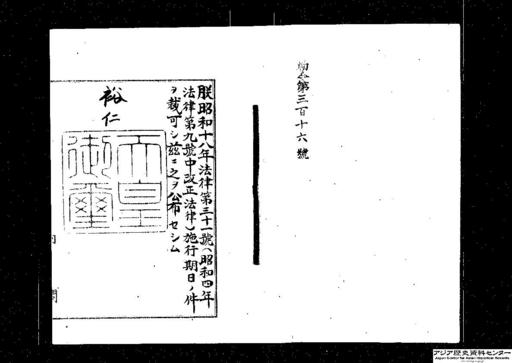 勅令第三百十六號
朕昭和十八年法律第三十一號(昭和四年
法律第九號中改正法律)施行期日ノ件
ヲ裁可シ茲ニ之ヲ公布セシム
裕仁
天皇御璽
アジア歴史資料センター
Japan Center for Asian Historical Records